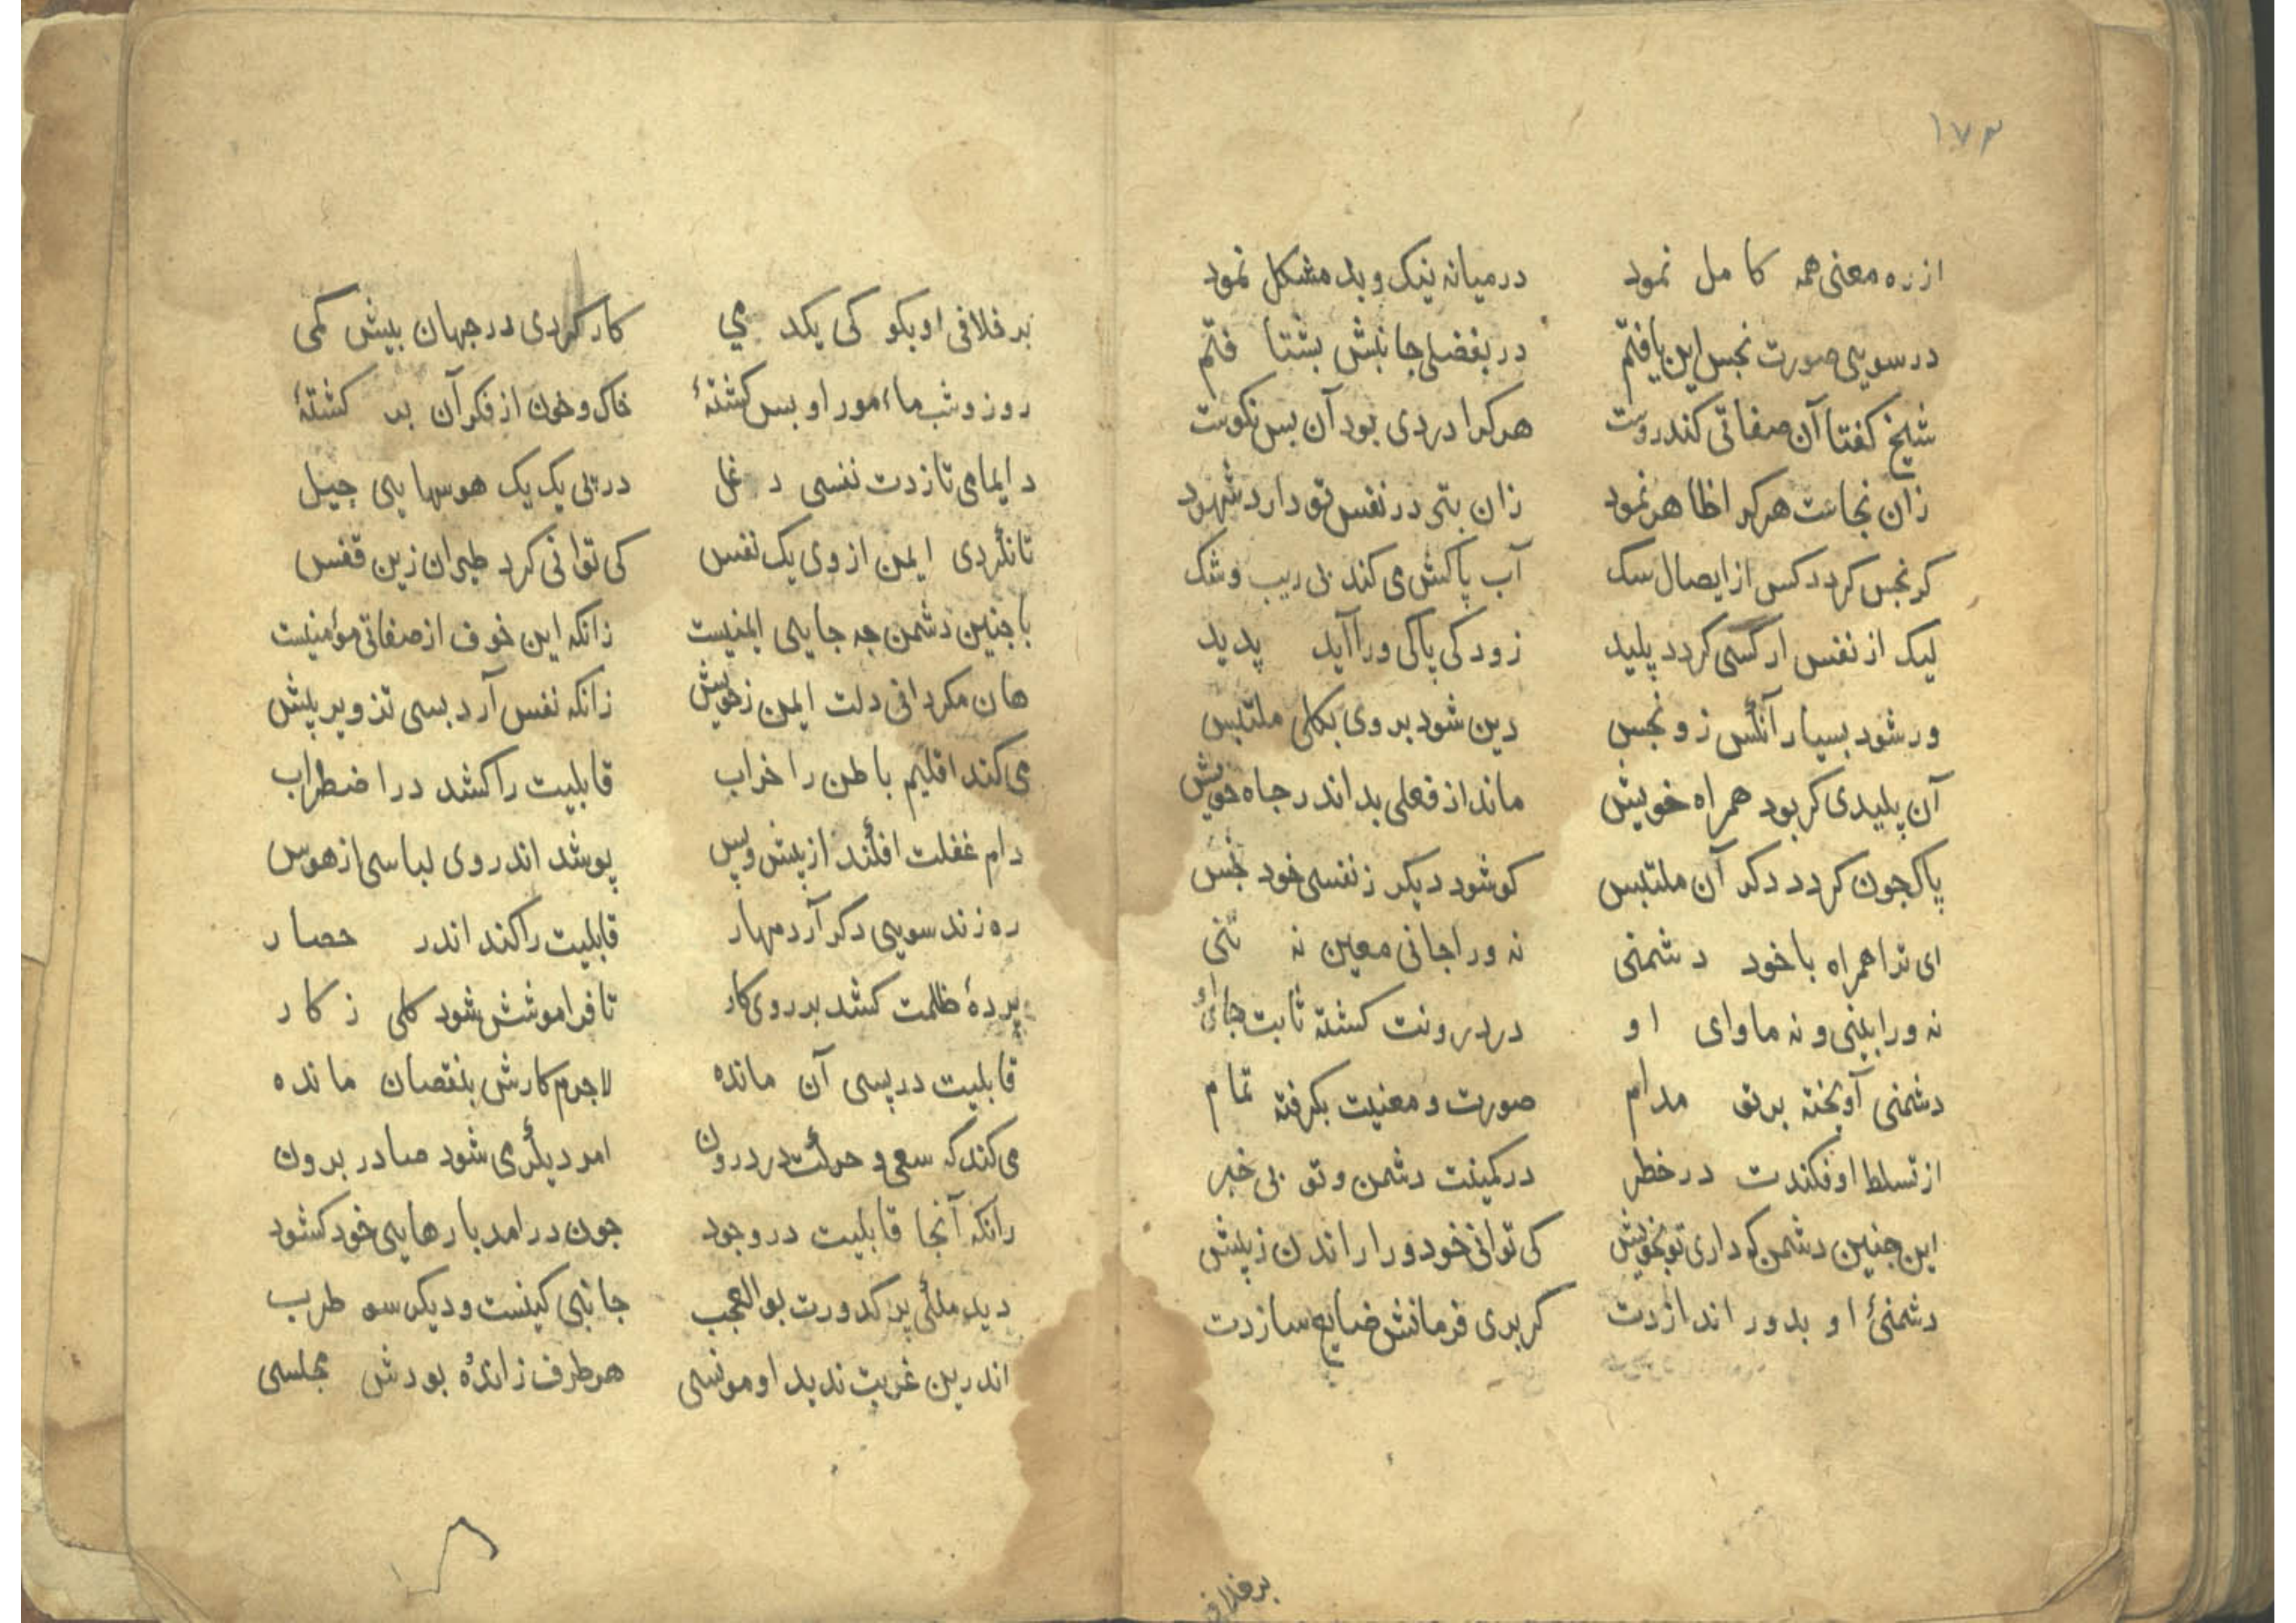 ۱۷۳
از ره معنی همه کامل نمود در میانه نیک و بد مشکل نمود
در سویی صورت نجس این یافتم در بفضلی جانبش بشتا فتم
شیخ کفتا آن صفاتی کندروست هر کرا دردی بود آن بس نکوست
زان نجاست هر کرا ظاهر نمود زان بتی در نفس تو دارد شهود
کر نجس کردد کس از ایصال سک آب پاکش می کند بی ریب و شک
لیک از نفس ار کسی کردد پلید زود کی پاکی ورا آید پدید
ور شود بسیار آنکس زو نجس دین شود بر وی بکلی ملتبس
آن پلیدی کر بود همراه خویش ماند از فعلی بد اندر جاه خویش
پاک جون کردد دکر آن ملتبس کو شود دیکر ز نفسی خود نجس
ای ترا همراه با خود دشمنی نه ورا جانی معین نه تنی
نه ورا بینی و نه ماوای او در درونت کشته ثابت جای او
دشمنی آویخته بر تو مدام صورت و معنیت بکرفته تمام
از تسلط اوفکندت در خطر در کمینت دشمن و تو بی خبر
این جنین دشمن کو داری تو بخویش کی توانی خود ورا راندن ز پیش
دشمنئ او بدور اندازدت کر بری فرمانش ضایع سازدت
بر خلافی
بر خلافی او بکو کی یکد می کار کردی در جهان بیش کمی
روز و شب ماءمور او بس کشتهٔ خاک و خون از فکر آن بد کشتهٔ
دایمامی تازدت نفسی دغل در پی یک یک هوسها یی جیل
تا نکردی ایمن از وی یک نفس کی توانی کرد طیران زین قفس
با جنین دشمن جه جایی ایمنیست زانکه این خوف از صفاتی مؤمنیست
هان مکردانی دلت ایمن ز خویش زانکه نفس آرد بسی تزویر پیش
می کند اقلیم باطن را خراب قابلیت را کشد در اضطراب
دام غفلت افکند از پیش و پس پوشد اندر وی لباسی از هوس
ره زند سویی دکر آرد مهار قابلیت را کند اندر حصار
پردهٔ ظلمت کشد بر روی کار تا فراموشش شود کلی ز کار
قابلیت در پسی آن مانده لاجرم کارش بنقصان مانده
می کند که سعی و حرکت در درون امر دیکر می شود صادر برون
رانکه آنجا قابلیت در وجود جون در امد بارهایی خود کشود
دید ملکی پر کدورت بوالعجب جانبی کینست و دیکر سو طرب
اندرین غربت ندید او مونسی هر طرف زانده بودش مجلسی